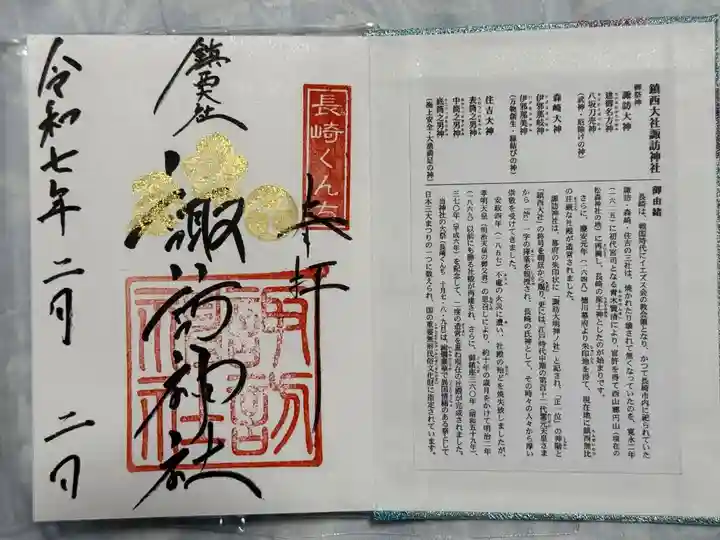 鎮西大社諏訪神社
御祭神
諏訪大神
建御名方神
八坂刀売神
(武神・厄除けの神)
森崎大神
伊邪那岐神
伊邪那美神
(万物創生・縁結びの神)
住吉大神
表筒之男神
中筒之男神
底筒之男神
(海上安全・大漁満足の神)
御由緒
長崎は、戦国時代にイエズス会の教会領となり、かつて長崎市内に祀られていた
諏訪・森崎・住吉の三社は、焼かれたり壊されて無くなっていたのを、寛永二年
(一六二五)に初代宮司となる青木賢清により、官許を得て西山郷円山(現在の
松森神社の地)に再興し、長崎の産土神としたのが始まりです。
さらに、慶安元年(一六四八)徳川幕府より朱印地を得て、現在地に鎮西無比
の荘厳な社殿が造営されました。
諏訪神社は、幕府の朱印状に「諏訪大明神ノ社」と記され、「正一位」の神階と
「鎮西大社」の称号を朝廷から賜り、更には、江戸時代中期の第百十二代霊元天皇さま
から「治」一字の御筆を親授され、長崎の氏神として、その時々の人々から厚い
崇敬を受けてきました。
安政四年(一八五七)不慮の火災に遭い、社殿の殆どを焼失致しましたが、
孝明天皇(明治天皇の御父君)の思召しにより、約十年の歳月をかけて明治二年
(一八六九)以前にも勝る社殿が再建され、さらに、御鎮座三六〇年(昭和五十九年)、
三七〇年(平成六年)を記念して、二度の造営を重ね現在の社殿が完成されました。
当神社の大祭(長崎くんち 十月七・八・九日)は、絢爛豪華で異国情緒のある祭として
日本三大まつりの一つに数えられ、国の重要無形民俗文化財に指定されています。
長崎くんち
奉拝
鎮西大社
諏訪神社
諏訪神社
令和七年二月二日